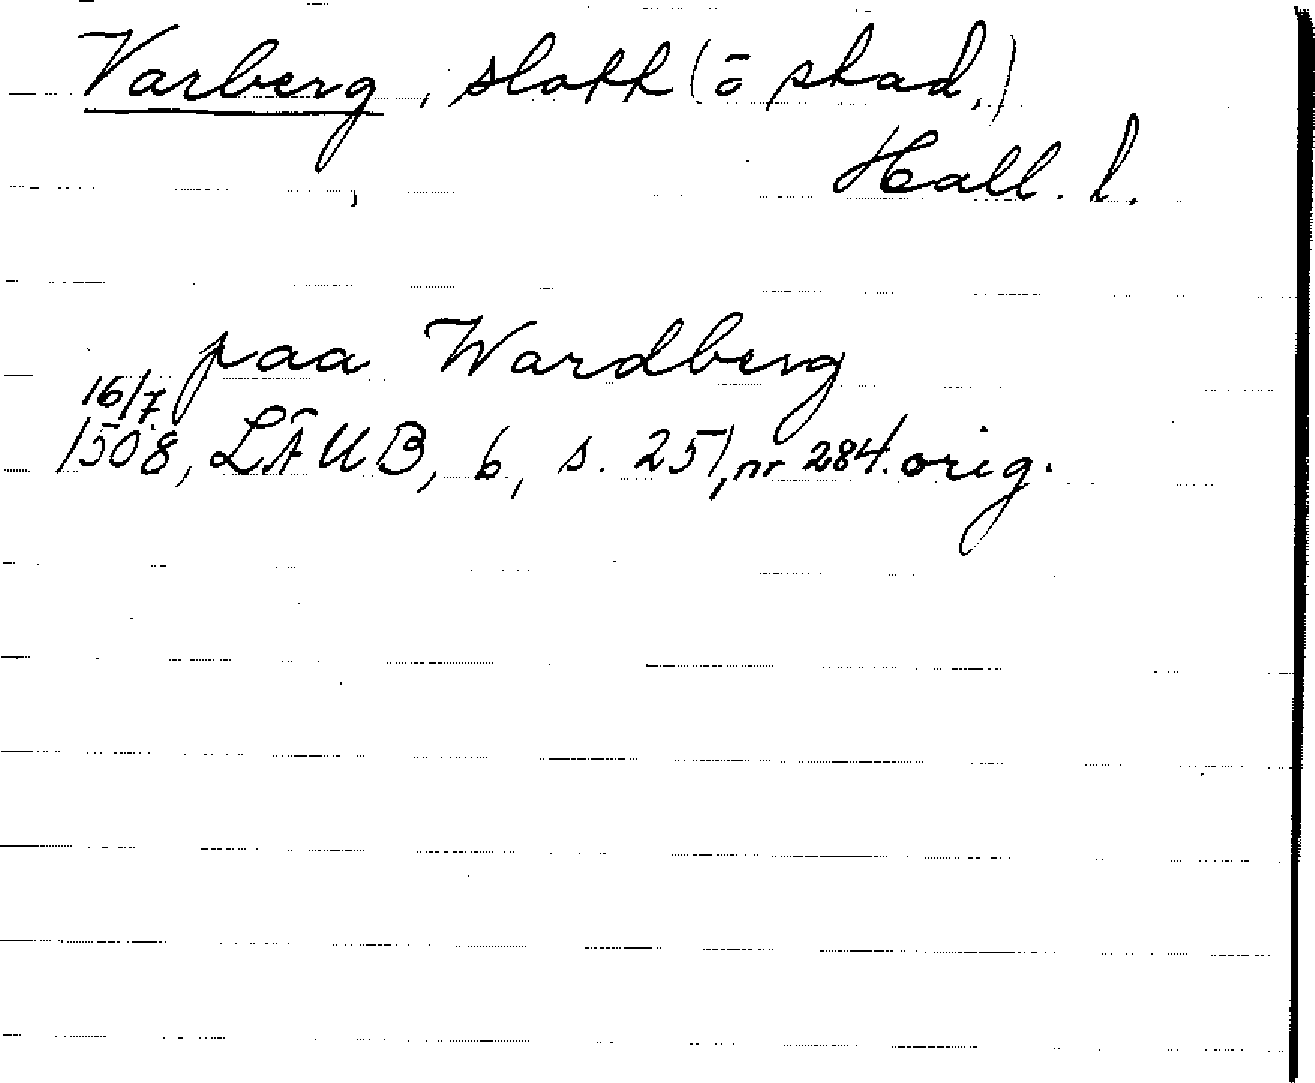 Varberg, slott (ō stad.)
Hall. l.
paa Wardberg
16/7
1508, LÄUB, 6, s. 251, nr 284. orig.